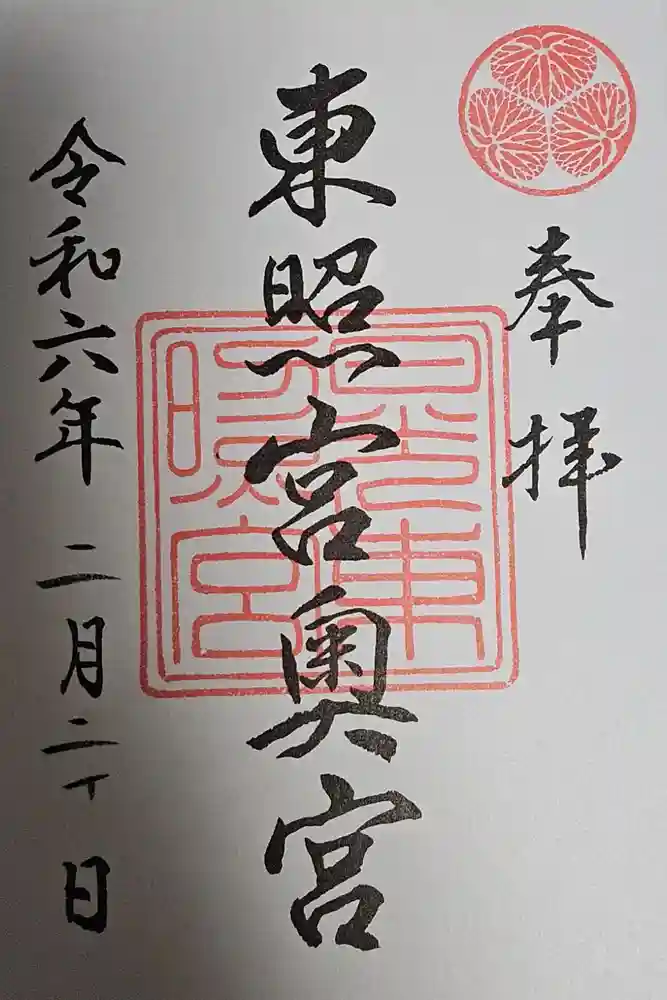 奉拝
東照宮奥宮
令和六年 二月二十日
日光東
照宮